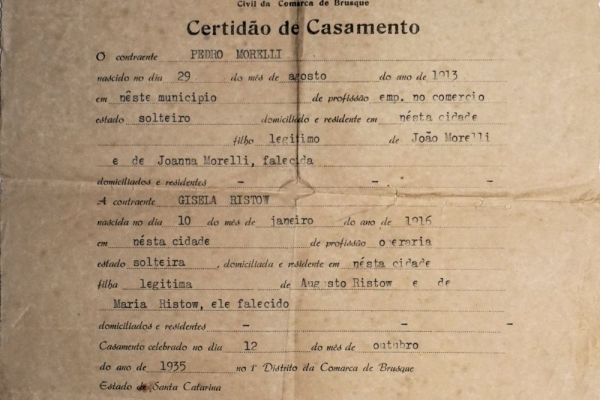 Civil da Comarca de Brusque
Certidão de Casamento
O contraente PEDRO MORELLI
nascido no dia 29 do mês de agosto do ano de 1913
em nêste municipio de profissão emp. no comercio
estado solteiro domiciliado e residente em nésta cidade
filho legitimo de João Morelli
e de Joanna Morelli, falecida
domiciliados e residentes - - -
A contraente GISELA RISTOW
nascida no dia 10 do mês de janeiro do ano de 1916
em nésta cidade de profissão operaria
estado solteira, domiciliada e residente em nésta cidade
filha legitima de Augusto Ristow e de
Maria Ristow, ele falecido
domiciliados e residentes - - -
Casamento celebrado no dia 12 do mês de outubro
do ano de 1935 no 1º Distrito da Comarca de Brusque
Estado de Santa Catarina